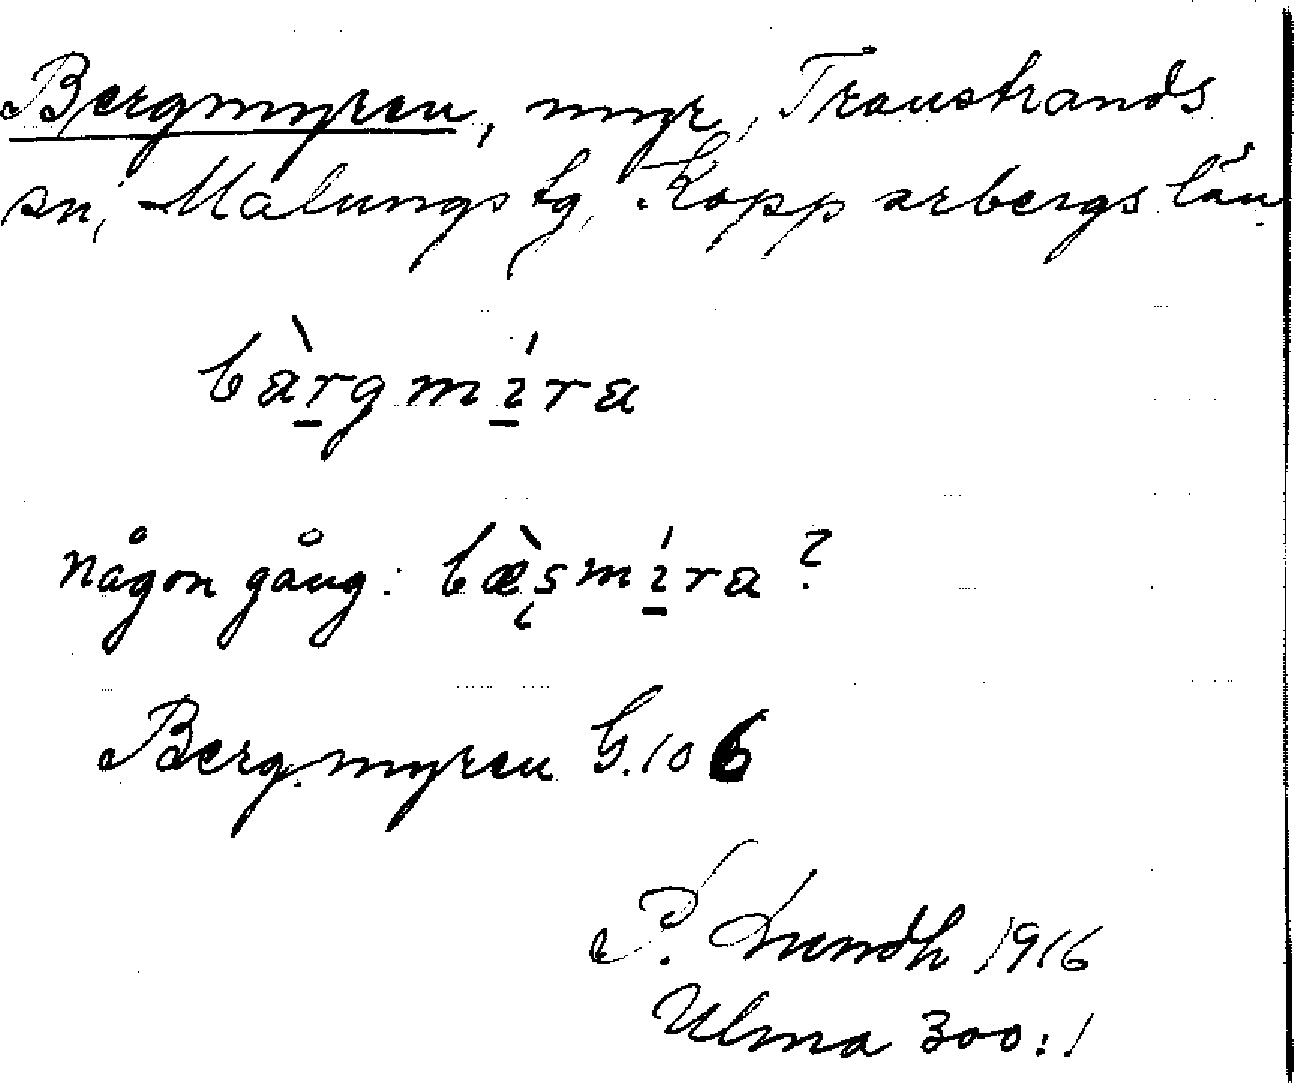 Bergmyren, myr, Transtrands
sn, Malungs tg, Kopparbergs län
bàrgmíra
någon gång: bæ̀smíra?
Bergmyren G.106
P. Lundh 1916
Ulma 300:1